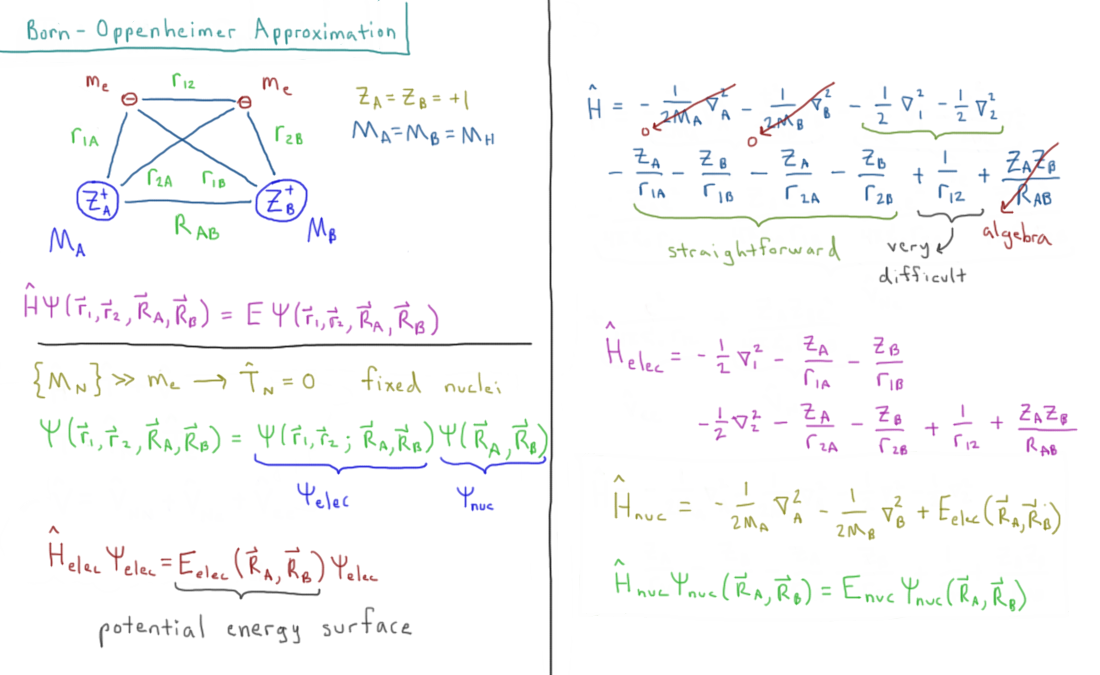 Born-Oppenheimer Approximation
mₑ r₁₂ mₑ
Z_A = Z_B = +1
M_A = M_B = M_H
r₁A r₂B
r₂A r₁B
Z_A⁺ Z_B⁺
R_AB
M_A M_B
ĤΨ(r⃗₁,r⃗₂,R⃗_A,R⃗_B) = EΨ(r⃗₁,r⃗₂,R⃗_A,R⃗_B)
{M_N} ≫ mₑ → T̂_N = 0 fixed nuclei
Ψ(r⃗₁,r⃗₂,R⃗_A,R⃗_B) = Ψ(r⃗₁,r⃗₂;R⃗_A,R⃗_B)Ψ(R⃗_A,R⃗_B)
Ψelec Ψnuc
Ĥelec Ψelec = Eelec(R⃗_A,R⃗_B)Ψelec
potential energy surface
Ĥ = - 1/2M_A ∇²_A - 1/2M_B ∇²_B - 1/2 ∇²₁ - 1/2 ∇²₂
0 0
- Z_A/r₁A - Z_B/r₁B - Z_A/r₂A - Z_B/r₂B + 1/r₁₂ + Z_A Z_B/R_AB
straightforward very difficult algebra
Ĥelec = - 1/2 ∇²₁ - Z_A/r₁A - Z_B/r₁B
- 1/2 ∇²₂ - Z_A/r₂A - Z_B/r₂B + 1/r₁₂ + Z_A Z_B/R_AB
Ĥnuc = - 1/2M_A ∇²_A - 1/2M_B ∇²_B + Eelec(R⃗_A,R⃗_B)
Ĥnuc Ψnuc(R⃗_A,R⃗_B) = Enuc Ψnuc(R⃗_A,R⃗_B)